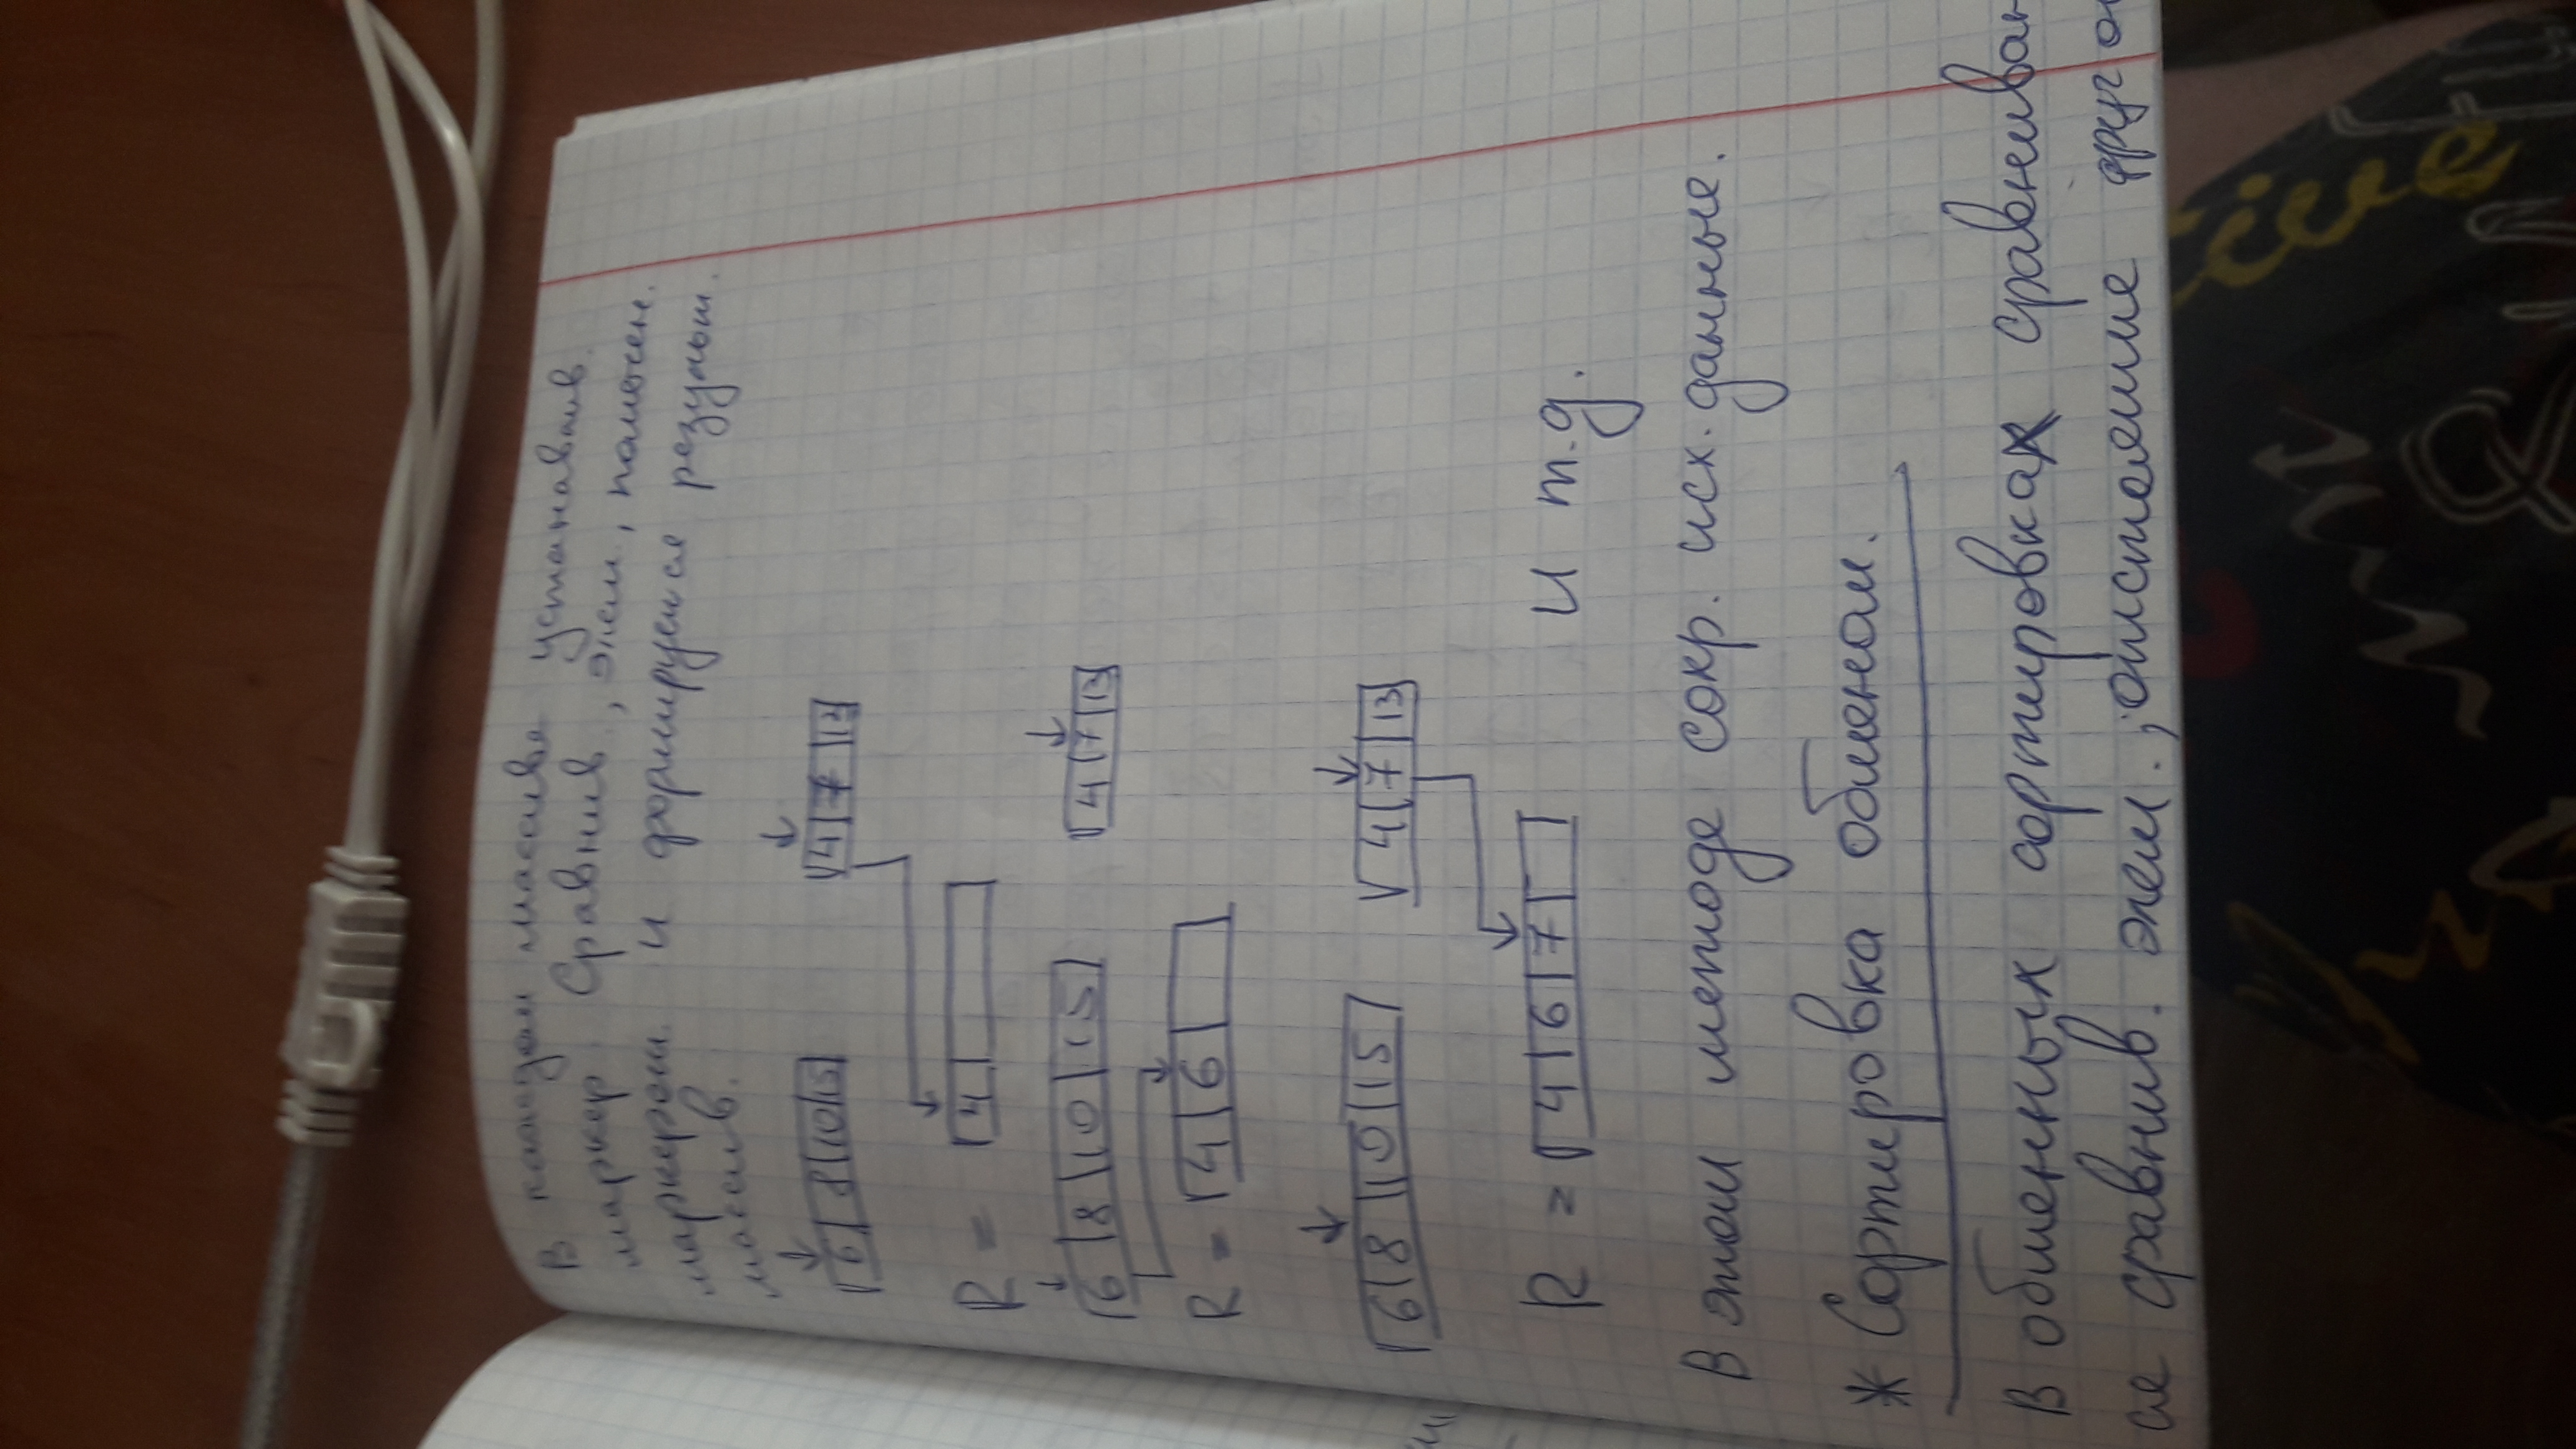 В каждом массиве устанавлив.
маркер. Сравнив, элем, помечен.
маркером. и формируется результ.
массив.
6 8 10 15 4 7 13
R = 4
6 8 10 15 4 7 13
R = 4 6
6 8 10 15 4 7 13
R = 4 6 7 и т.д.
В этом методе сохр. исх. данные.
* Сортировка обменом.
В обменных сортировках сравниван
ся сравнив. элем., отстоящие друг о